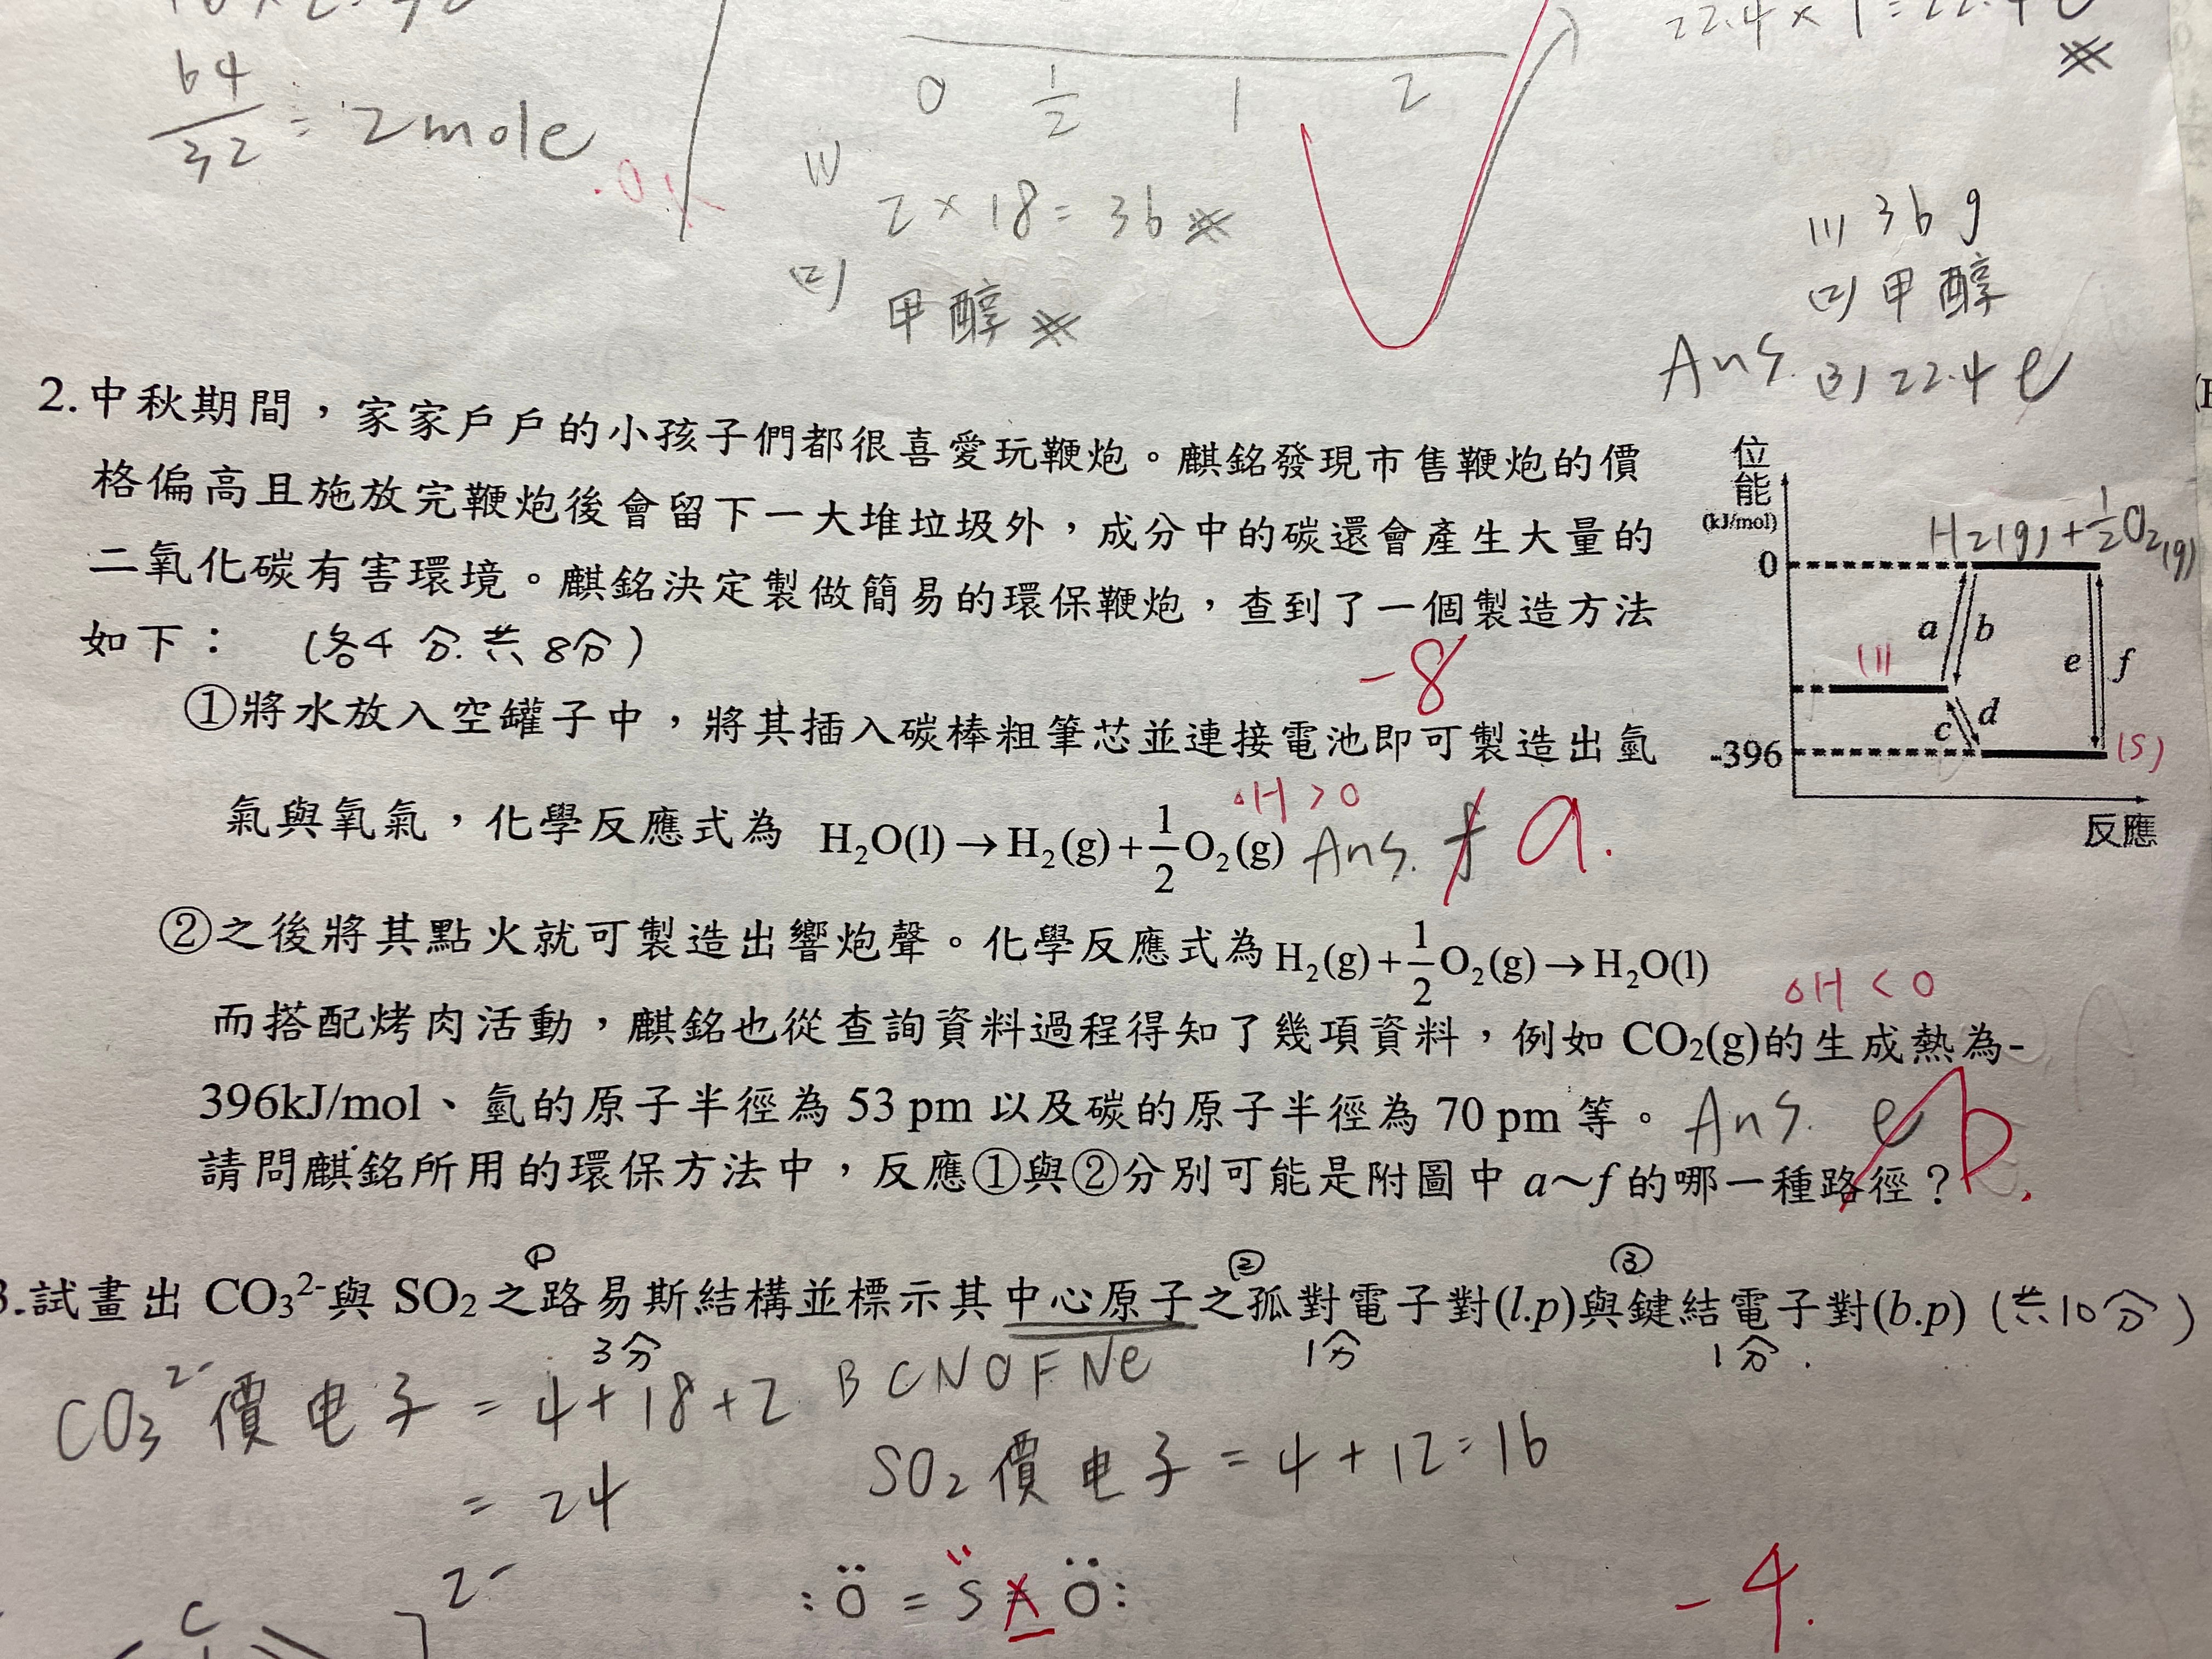 64/32 = 2mole
0 1/2 1 2
(1) 2×18=36※
(2) 甲醇※
22.4×1=22.4ℓ
※
(1) 36g
(2) 甲醇
Ans. (3) 22.4ℓ
2.中秋期間，家家戶戶的小孩子們都很喜愛玩鞭炮。麒銘發現市售鞭炮的價
格偏高且施放完鞭炮後會留下一大堆垃圾外，成分中的碳還會產生大量的
二氧化碳有害環境。麒銘決定製做簡易的環保鞭炮，查到了一個製造方法
如下： (各4分.共8分)
-8
①將水放入空罐子中，將其插入碳棒粗筆芯並連接電池即可製造出氫
氣與氧氣，化學反應式為 H₂O(l)→H₂(g)+1/2O₂(g) Ans. f a.
△H>0
②之後將其點火就可製造出響炮聲。化學反應式為H₂(g)+1/2O₂(g)→H₂O(l)
△H<0
而搭配烤肉活動，麒銘也從查詢資料過程得知了幾項資料，例如 CO₂(g)的生成熱為-
396kJ/mol、氫的原子半徑為 53 pm 以及碳的原子半徑為 70 pm 等。 Ans. e b.
請問麒銘所用的環保方法中，反應①與②分別可能是附圖中 a～f 的哪一種路徑？
位能
(kJ/mol)
H₂(g)+1/2O₂(g)
0
a b
e f
(l)
c d
-396
(s)
反應
3.試畫出 CO₃²⁻與 SO₂之路易斯結構並標示其中心原子之孤對電子對(l.p)與鍵結電子對(b.p) (共10分)
① ② ③
3分 1分 1分.
CO₃²⁻價电子=4+18+2
=24
BCNOFNe
SO₂價电子=4+12=16
2-
C
:Ö=S=Ö:
-4.